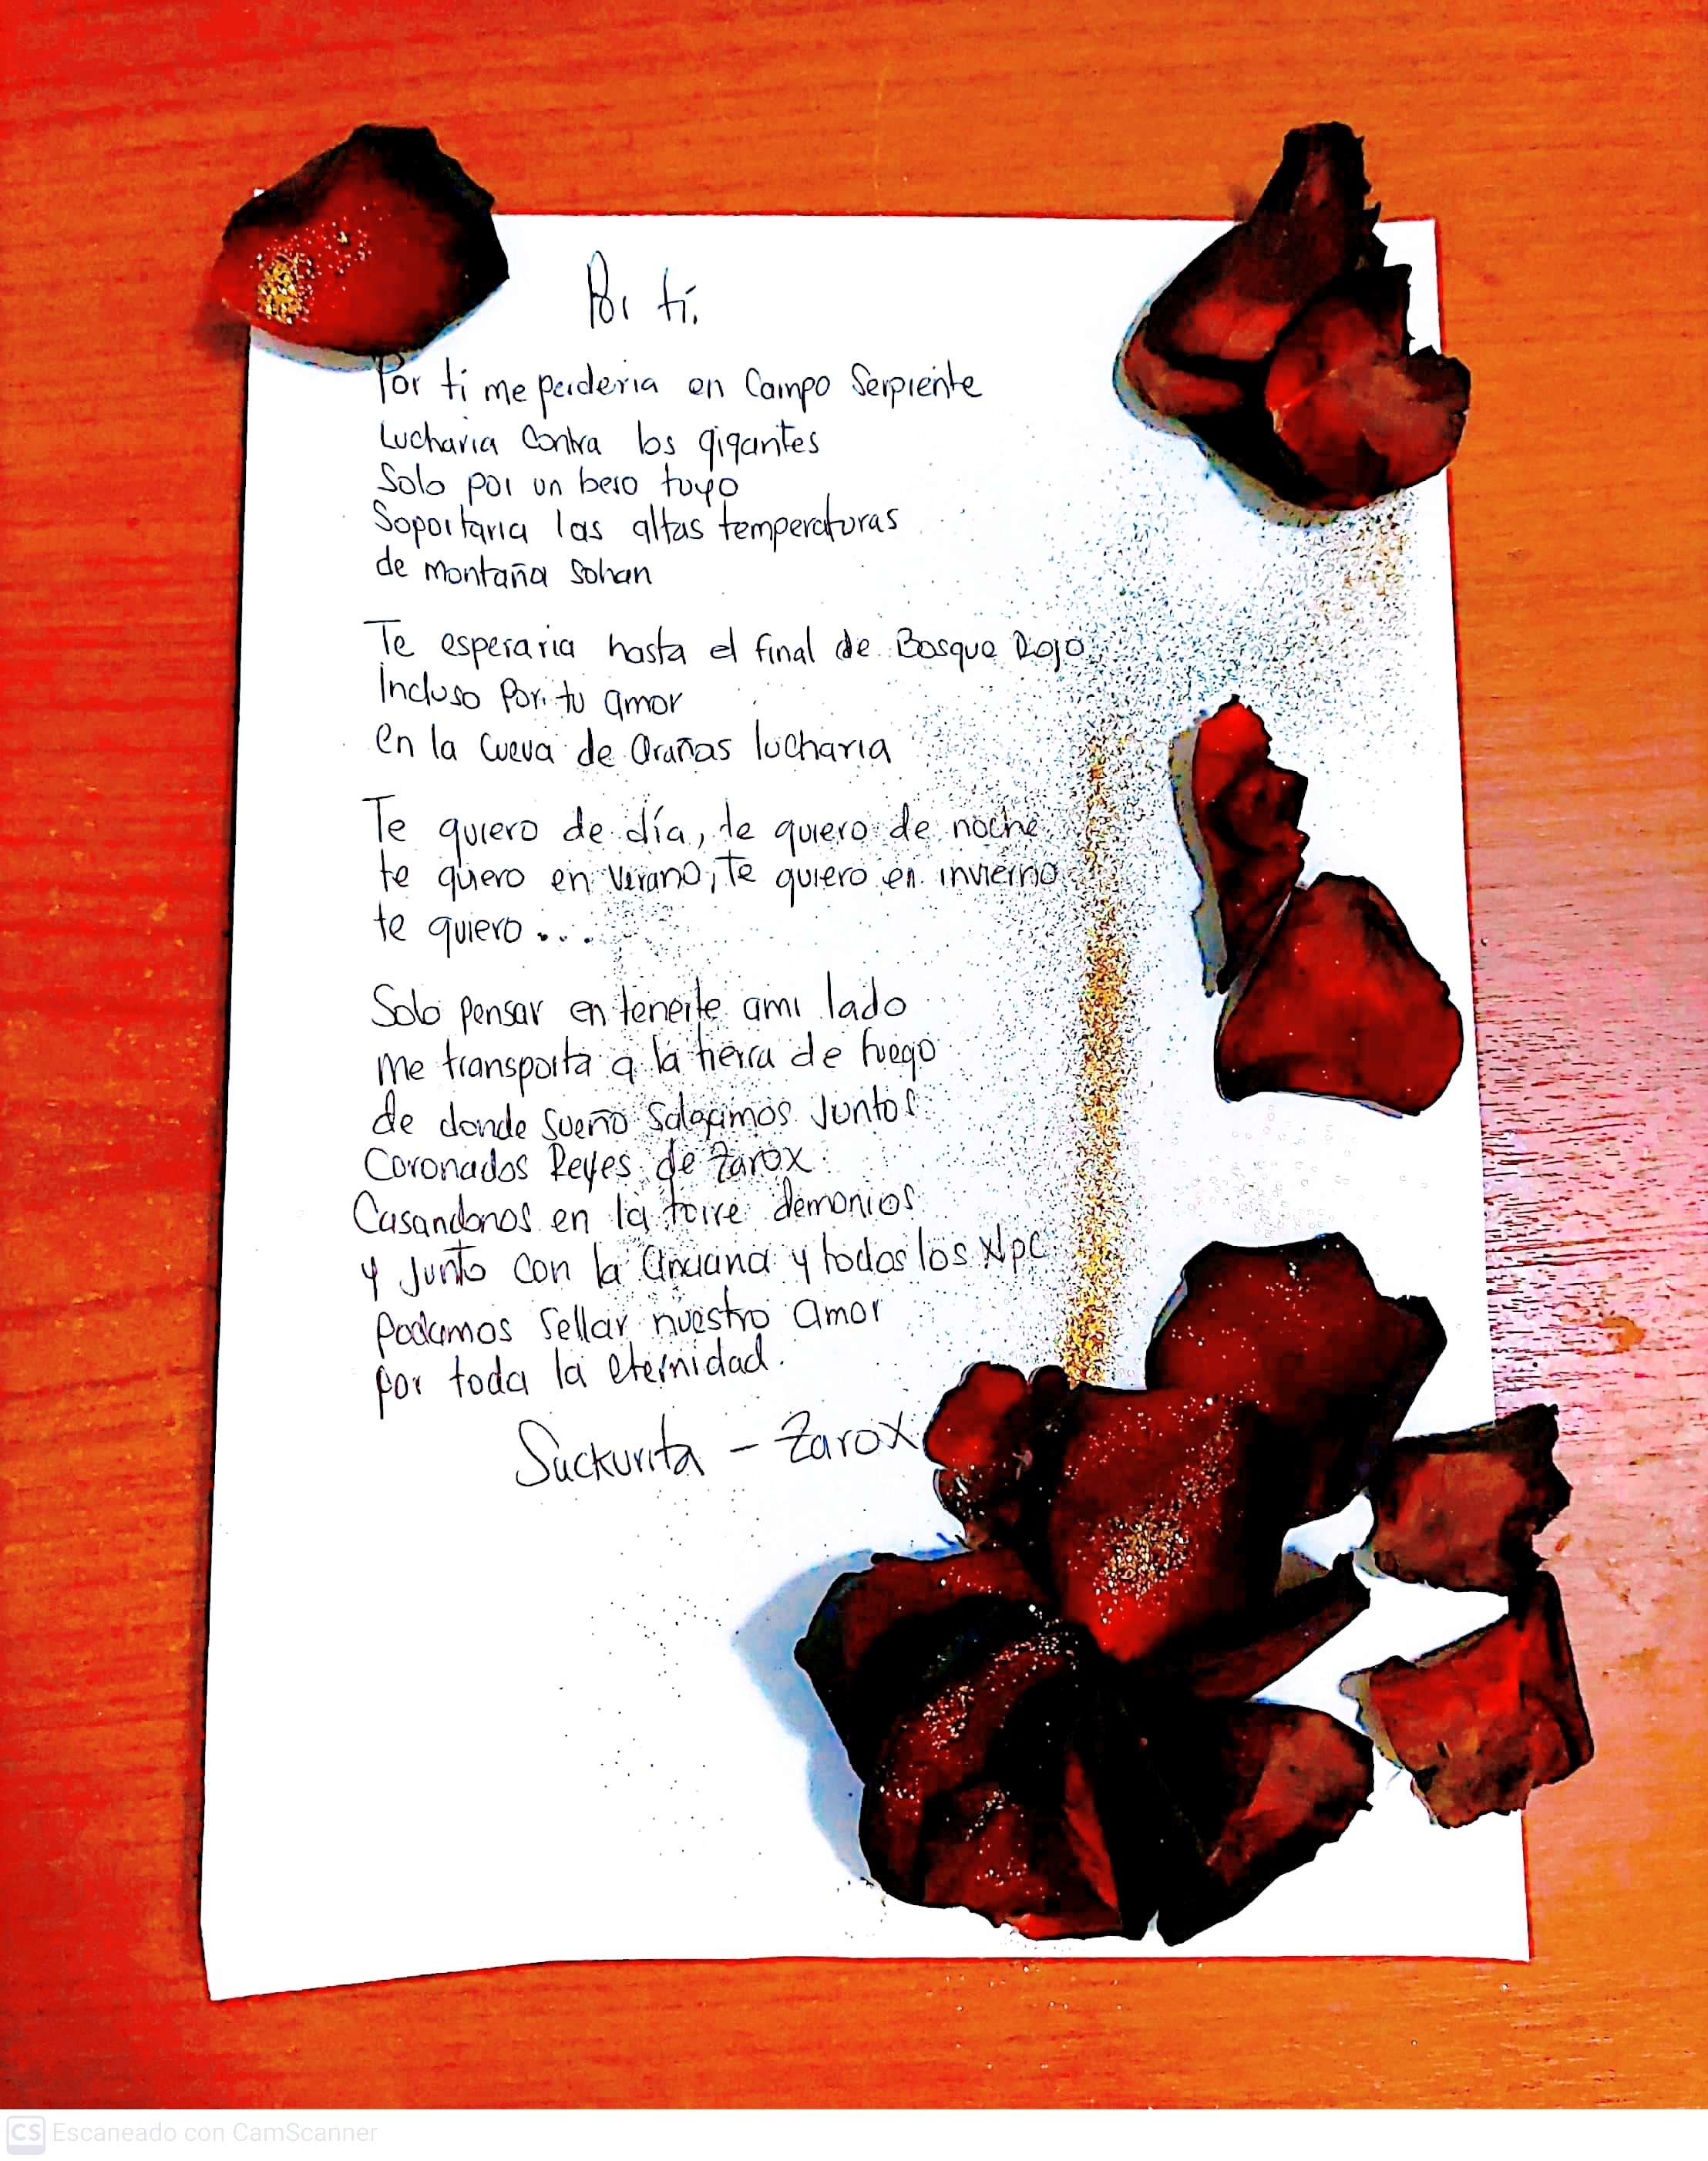 Por ti.
Por ti me perderia en Campo Serpiente
Lucharia contra los gigantes
Solo por un beso tuyo
Soportaria las altas temperaturas
de montaña Sohan
Te esperaria hasta el final de Bosque Rojo
Incluso Por tu amor
en la cueva de arañas lucharia
Te quiero de día, te quiero de noche
te quiero en verano, te quiero en invierno
te quiero...
Solo pensar en tenerte ami lado
me transporta a la tierra de fuego
de donde sueño salgamos juntos
Coronados Reyes de Zarox
Casandonos en la torre demonios
y junto con la anciana y todos los Npc
podamos sellar nuestro amor
por toda la eternidad.
Suckurita - Zarox
CS Escaneado con CamScanner